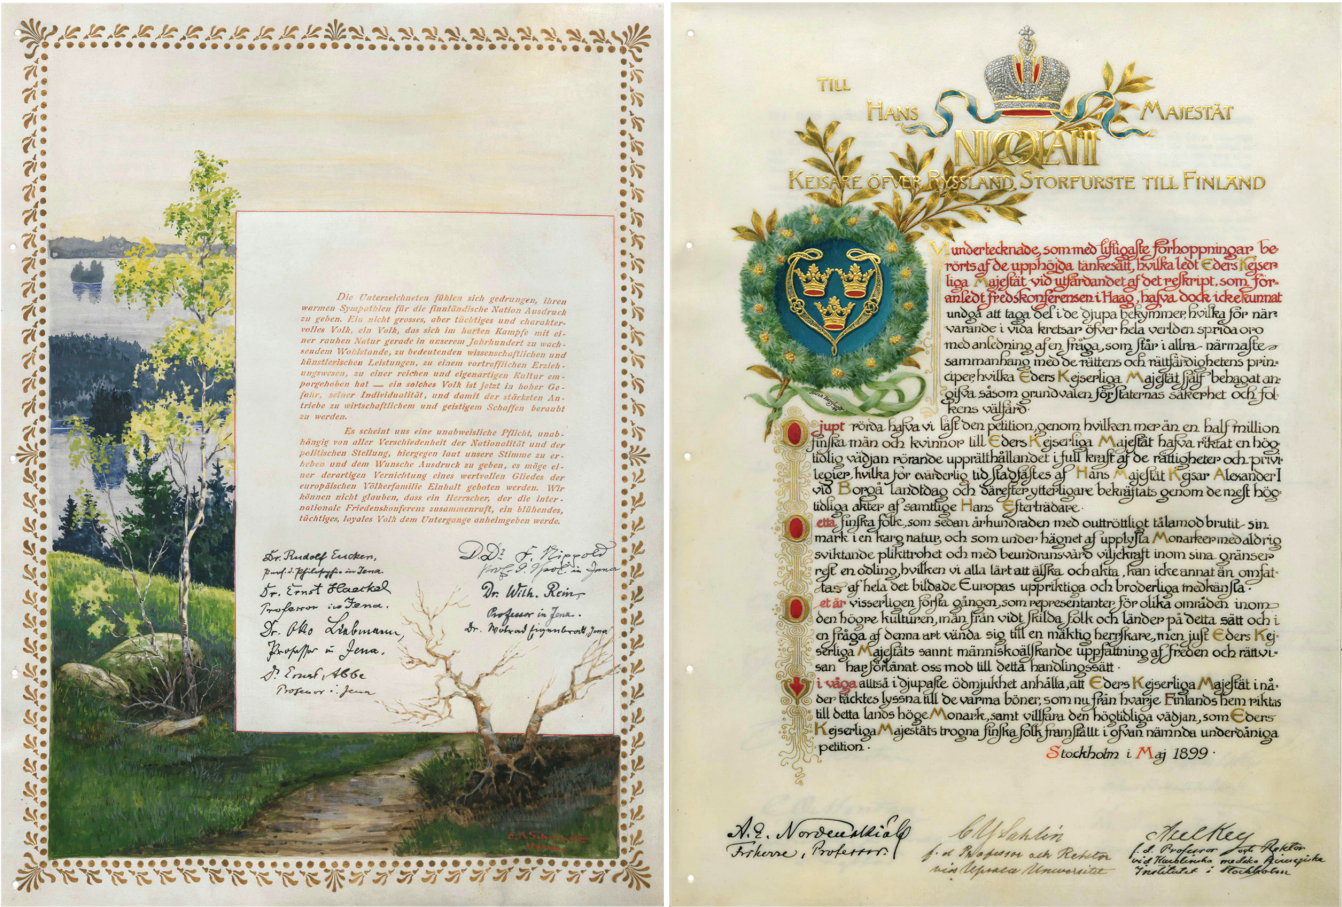 Die Unterzeichneten fühlen sich gedrungen, ihren
warmen Sympathien für die finnländische Nation Ausdruck
zu geben. Ein nicht grosses, aber tüchtiges und charakter-
volles Volk, ein Volk, das sich im harten Kampfe mit ei-
ner rauhen Natur gerade in unserem Jahrhundert zu wach-
sendem Wohlstande, zu bedeutenden wissenschaftlichen und
künstlerischen Leistungen, zu einem vortrefflichen Erzieh-
ungswesen, zu einer reichen und eigenartigen Kultur em-
porgehoben hat — ein solches Volk ist jetzt in hoher Ge-
fahr, seiner Individualität, und damit der stärksten An-
triebe zu wirtschaftlichem und geistigem Schaffen beraubt
zu werden.
Es scheint uns eine unabweisliche Pflicht, unab-
hängig von aller Verschiedenheit der Nationalität und der
politischen Stellung, hiergegen laut unsere Stimme zu er-
heben und dem Wunsche Ausdruck zu geben, es möge ei-
ner derartigen Vernichtung eines wertvollen Gliedes der
europäischen Völkerfamilie Einhalt geboten werden. Wir
können nicht glauben, dass ein Herrscher, der die inter-
nationale Friedenskonferenz zusammenruft, ein blühendes,
tüchtiges, loyales Volk dem Untergange anheimgeben werde.
Dr. Rudolf Eucken,
Prof. d. Philosophie in Jena
Dr. Ernst Haeckel
Professor in Jena.
Dr. Otto Liebmann,
Professor in Jena.
Dr. Ernst Abbe
Professor i. Jena
F. Nippold
in Jena
Dr. Wilh. Rein,
Professor in Jena.
Dr. Jena
TILL
HANS MAJESTÄT
NICOLAI II
KEJSARE ÖFVER RYSSLAND, STORFURSTE TILL FINLAND
Undertecknade, som med lifligaste förhoppningar be-
rörts af de upphöjda tänkesätt, hvilka ledt Eders Kejser-
liga Majestät vid utfärdandet af det reskript, som för-
anledt fredskonferensen i Haag, hafva dock icke kunnat
undgå att taga del i de djupa bekymmer, hvilka för när-
varande i vida kretsar öfver hela verlden sprida oro
med anledning af en fråga, som står i allra närmaste
sammanhang med de rättens och rättfärdighetens prin-
ciper, hvilka Eders Kejserliga Majestät själf behagat an-
gifva såsom grundvalen för staternas säkerhet och fol-
kens välfärd.
Djupt rörda hafva vi läst den petition, genom hvilken mer än en half million
finska män och kvinnor till Eders Kejserliga Majestät hafva riktat en hög-
tidlig vädjan rörande upprätthållandet i full kraft af de rättigheter och privi-
legier, hvilka för evärderlig tid stadfästes af Hans Majestät Kejsar Alexander I
vid Borgå landtdag och därefter ytterligare bekräftats genom de mest hög-
tidliga akter af samtlige Hans Efterträdare.
Detta finska folk, som sedan århundraden med outtröttligt tålamod brutit sin
mark i en karg natur, och som under hägnet af upplysta Monarker med aldrig
sviktande plikttrohet och med beundransvärd viljekraft inom sina gränser
rest en odling, hvilken vi alla lärt att älska och akta, kan icke annat än omfat-
tas af hela det bildade Europas uppriktiga och broderliga medkänsla.
Det är visserligen första gången, som representanter för olika områden inom
den högre kulturen, män från vidt skilda folk och länder på detta sätt och i
en fråga af denna art vända sig till en mäktig herrskare, men just Eders Kej-
serliga Majestäts sannt människoälskande uppfattning af freden och rättvi-
san har förlänat oss mod till detta handlingssätt.
Vi våga alltså i djupaste ödmjukhet anhålla, att Eders Kejserliga Majestät i nå-
der täcktes lyssna till de varma böner, som nu från hvarje Finlands hem riktas
till detta lands höge Monark, samt villfara den högtidliga vädjan, som Eders
Kejserliga Majestäts trogna finska folk framställt i ofvan nämnda underdåniga
petition.
Stockholm i Maj 1899.
A. E. Nordenskiöld
Friherre, Professor.
C Y Sahlin
f. d. Professor och Rektor
vid Upsala Universitet
Axel Key
f. d. Professor och Rektor
vid Karolinska mediko kirurgiska
Institutet i Stockholm